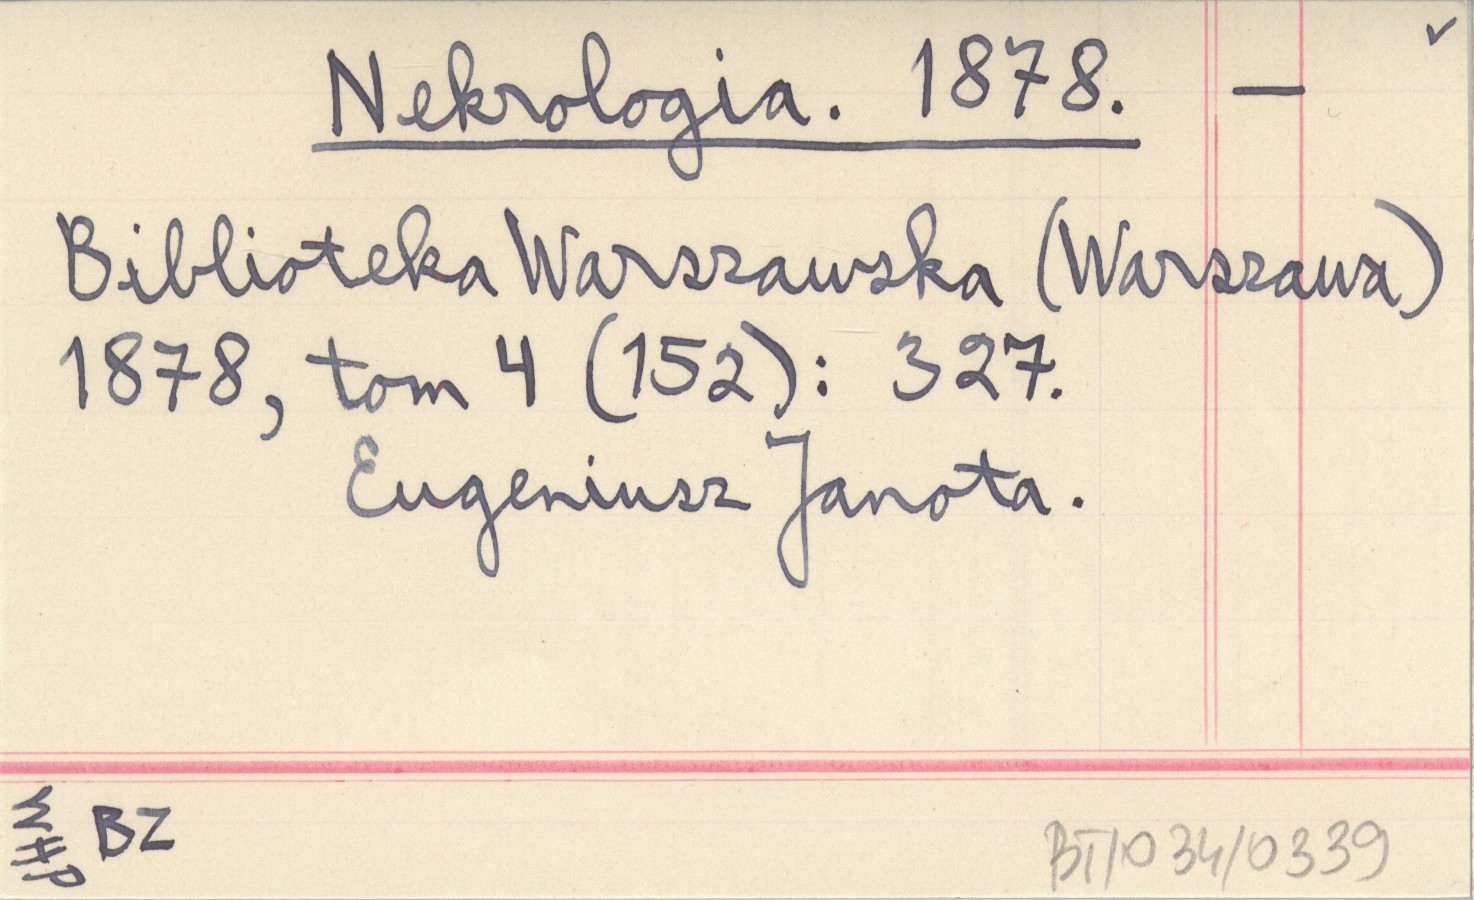 ✓
Nekrologia. 1878. —
Biblioteka Warszawska (Warszawa)
1878, tom 4 (152): 327.
Eugeniusz Janota.
WHP
BZ
BT/034/0339